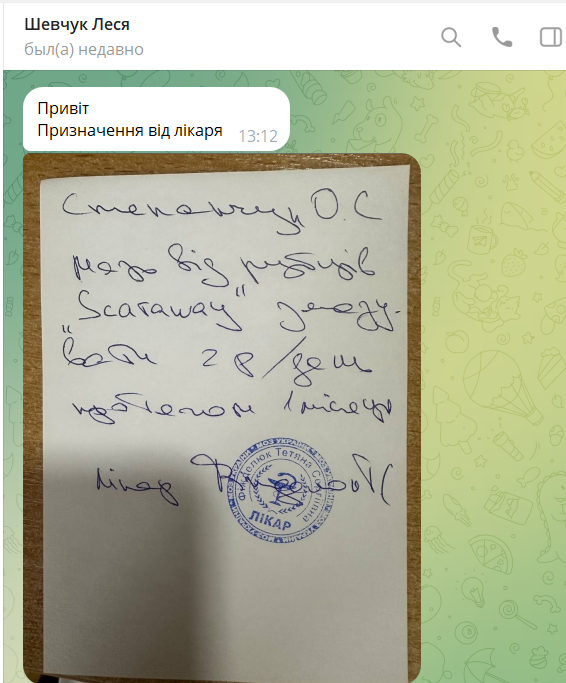 Шевчук Леся
был(а) недавно
Привіт
Призначення від лікаря 13:12
Степанчук О.С
мазь від рубців
"Scaraway" змазу-
вати 2 р/день
протягом 1 місяця
лікар
Тетяна
ЛІКАР